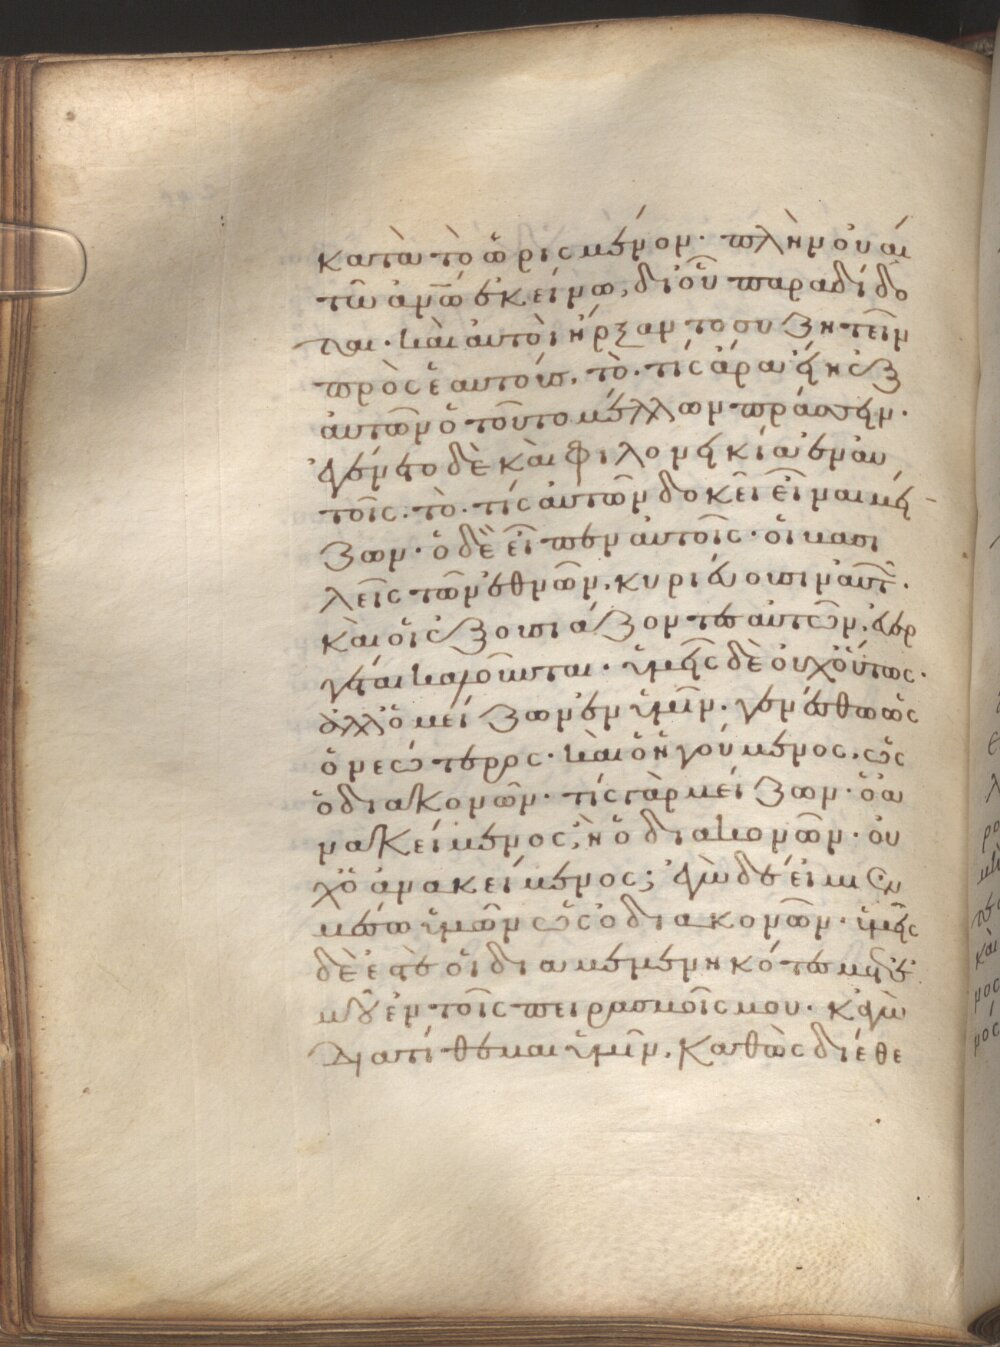 κατα τὸ ὡρισμένον· πλὴν οὐαὶ
τῶ ἀνῶ ἐκείνω, δι οὗ παραδίδο
ται· καὶ αὐτοὶ ἤρξαντο συζητεῖν
πρὸς ἑαυτούς. τὸ· τίς ἄρα εἴη ἐξ
αὐτῶν ὁ τοῦτο μέλλων πράσσειν·
ἐγένετο δὲ καὶ φιλονεικία ἐν αὐ
τοῖς· τὸ· τίς αὐτῶν δοκεῖ εἶναι μεί
ζων· ὁ δὲ εἶπεν αὐτοῖς· οἱ βασι
λεῖς τῶν ἐθνῶν, κυριεύουσιν αὐτῶν·
καὶ οἱ ἐξουσιάζοντες αὐτῶν, εὐερ
γέται καλοῦνται· ὑμεῖς δὲ οὐχ οὕτως·
ἀλλ ὁ μείζων ἐν ὑμῖν· γενέσθω ὡς
ὁ νεώτερος· καὶ ὁ ἡγούμενος, ὡς
ὁ διακονῶν· τίς γὰρ μείζων· ὁ ἀ
νακείμενος, ἢ ὁ διακονῶν· οὐ
χ ὁ ἀνακείμενος; ἐγὼ δέ εἰμι ἐν
μέσω ὑμῶν ὡς ὁ διακονῶν· ὑμεῖς
δέ ἐστε οἱ διαμεμενηκότες μετ ἐ
μοῦ ἐν τοῖς πειρασμοῖς μου· κἀγὼ
διατίθεμαι ὑμῖν, καθὼς διέθε